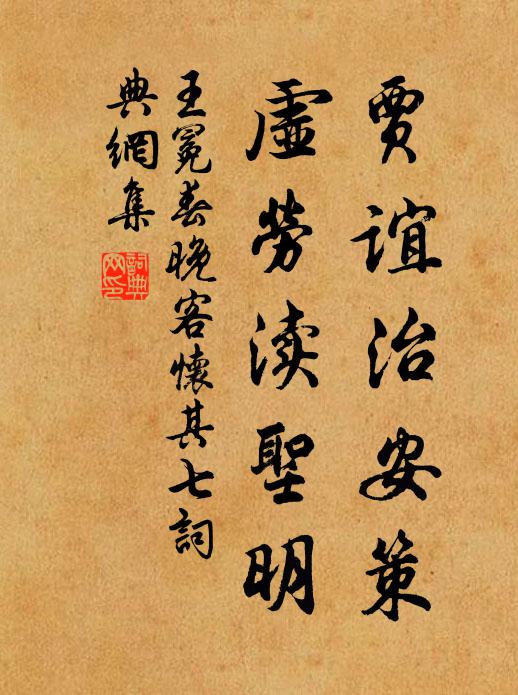 賈誼治安策
虛勞渎聖明
王冕春晚客懷其七詞
典網集
詞典
网印